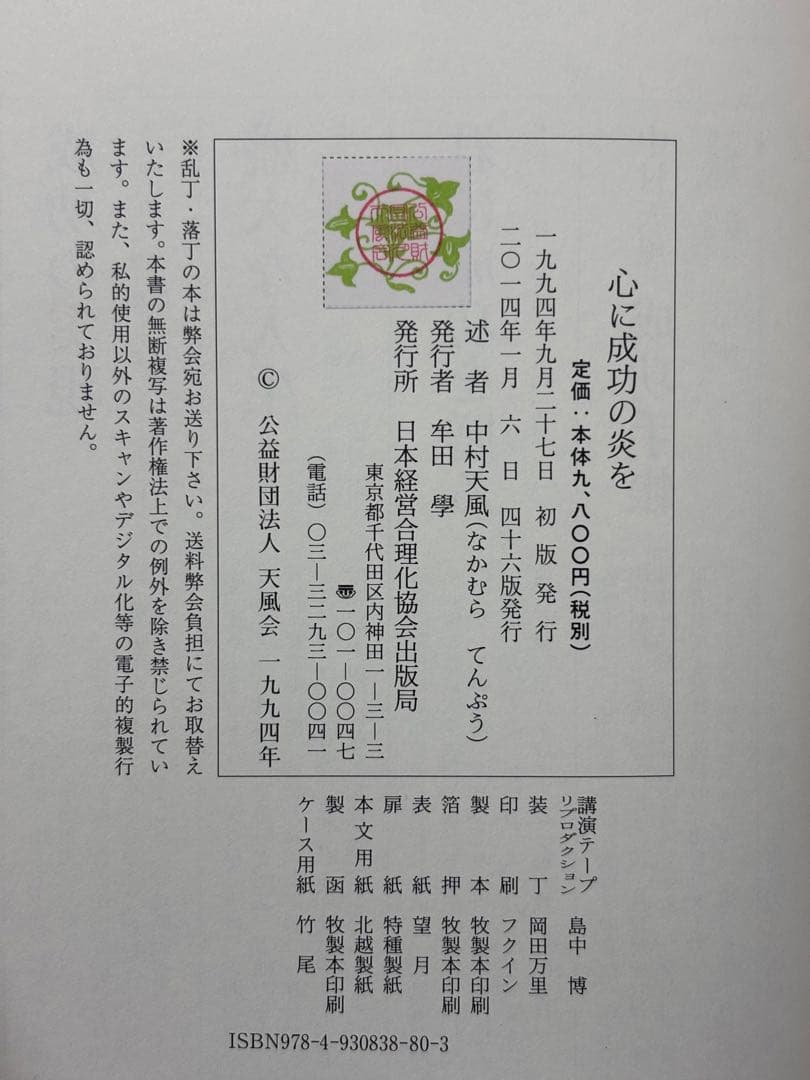 心に成功の炎を
定価：本体九、八〇〇円(税別)
一九九四年九月二十七日 初版発行
二〇一四年一月 六 日 四十六版発行
述 者 中村天風(なかむら てんぷう)
発行者 牟田 學
発行所 日本経営合理化協会出版局
東京都千代田区内神田一―三―三
〒一〇一―〇〇四七
(電話)〇三―三二九三―〇〇四一
© 公益財団法人 天風会 一九九四年
※乱丁・落丁の本は弊会宛お送り下さい。送料弊会負担にてお取替え
いたします。本書の無断複写は著作権法上での例外を除き禁じられてい
ます。また、私的使用以外のスキャンやデジタル化等の電子的複製行
為も一切、認められておりません。
講演テープ
リプロダクション 島中 博
装丁 岡田万里
印刷 フクイン
製本 牧製本印刷
箔押 牧製本印刷
表紙 望月
扉紙 特種製紙
本文用紙 北越製紙
製函 牧製本印刷
ケース用紙 竹尾
ISBN978-4-930838-80-3